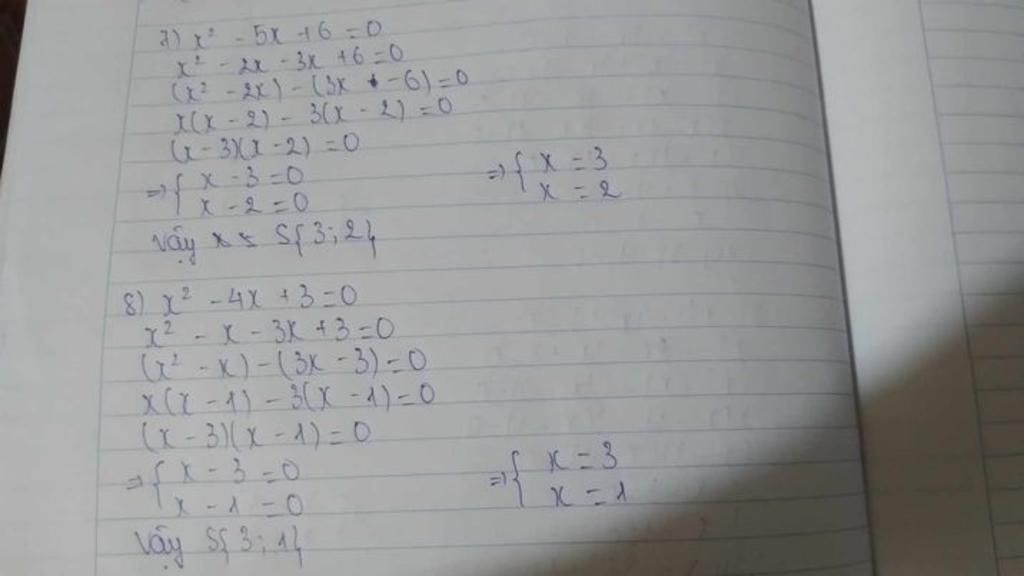 7) x² - 5x + 6 = 0
x² - 2x - 3x + 6 = 0
(x² - 2x) - (3x - 6) = 0
x(x - 2) - 3(x - 2) = 0
(x - 3)(x - 2) = 0
=> { x - 3 = 0 => { x = 3
x - 2 = 0 x = 2
Vậy x = S{3; 2}
8) x² - 4x + 3 = 0
x² - x - 3x + 3 = 0
(x² - x) - (3x - 3) = 0
x(x - 1) - 3(x - 1) = 0
(x - 3)(x - 1) = 0
=> { x - 3 = 0 => { x = 3
x - 1 = 0 x = 1
Vậy S{3; 1}